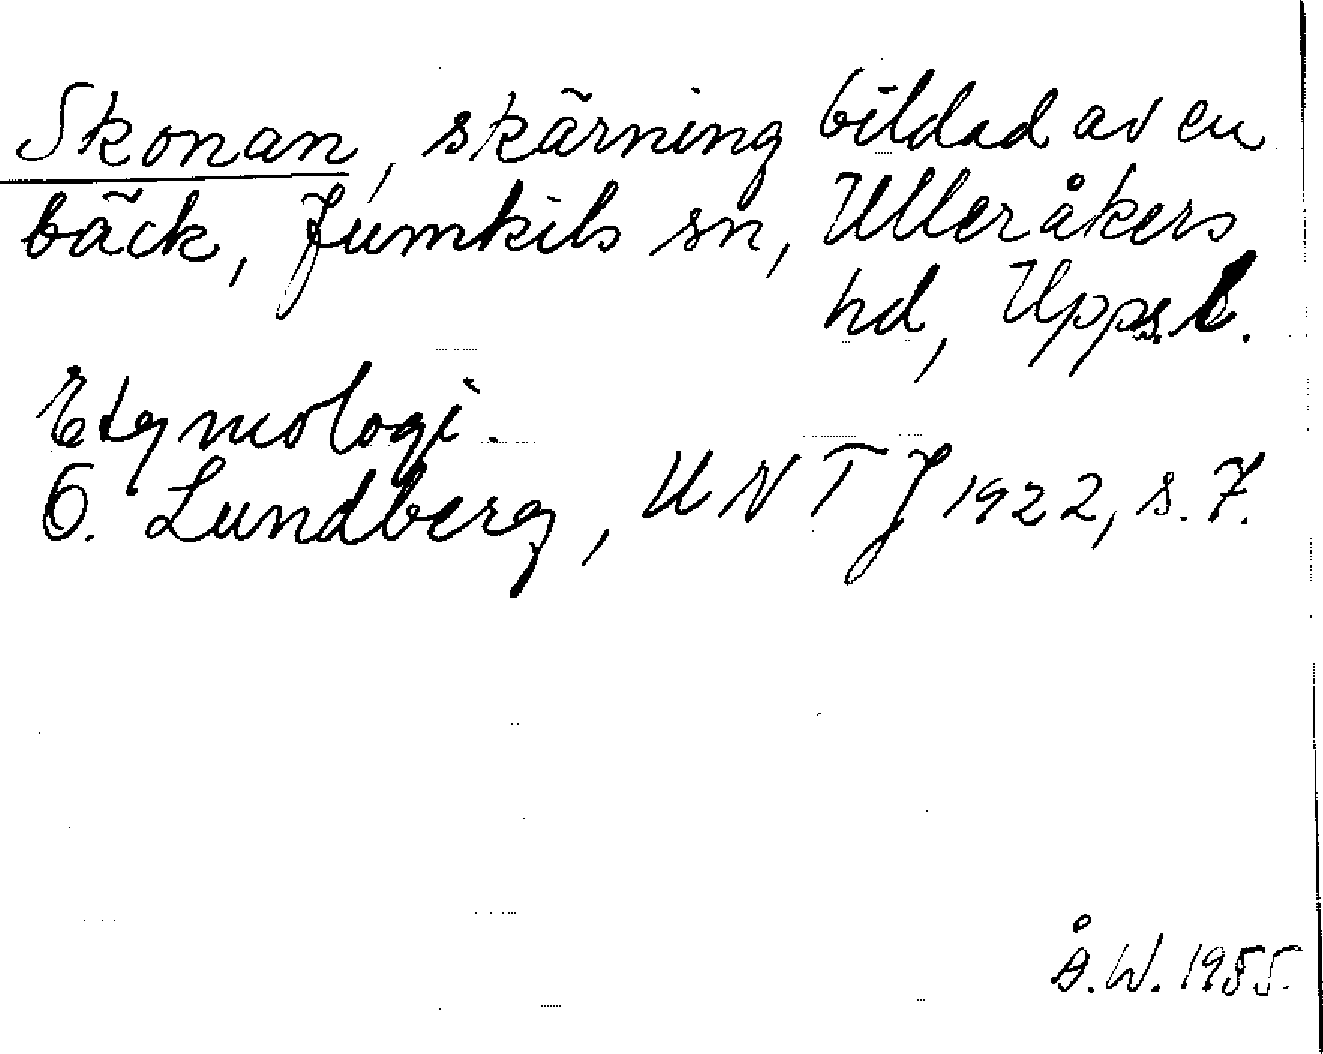 Skonan, skärning bildad av en
bäck, Jumkils sn, Ulleråkers
hd, Uppsl.
Etymologi.
O. Lundberg, UNTJ 1922, s. 7.
Å.W. 1955.